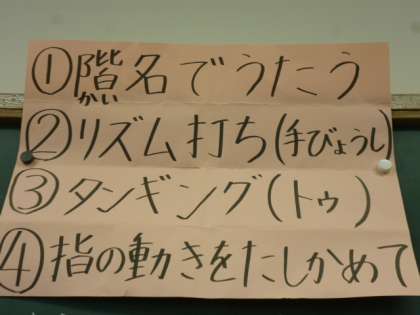 ①階名でうたう
かい
②リズム打ち(手びょうし)
③タンギング(トゥ)
④指の動きをたしかめて